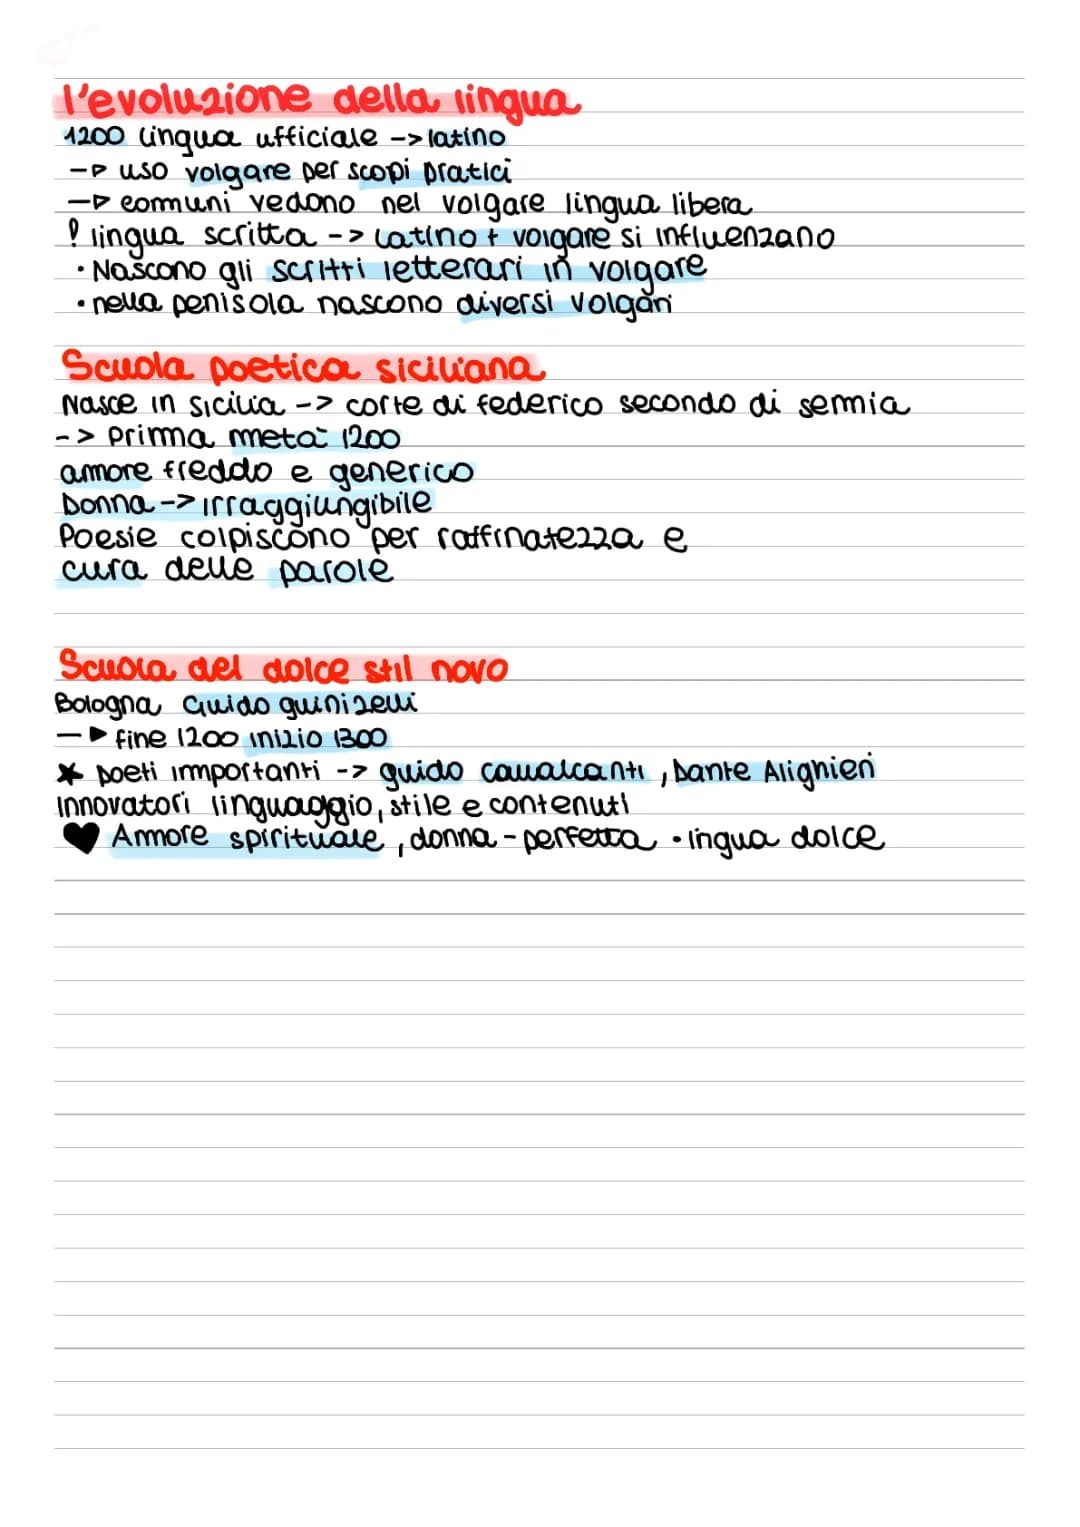 l'evoluzione della lingua
1200 lingua ufficiale -> latino
-> uso volgare per scopi pratici
-> comuni vedono nel volgare lingua libera
! lingua scritta -> Latino + volgare si influenzano
• Nascono gli scritti letterari in volgare
• nella penisola nascono diversi volgari
Scuola poetica siciliana
Nasce in Sicilia -> corte di federico secondo di semia
-> prima metà 1200
amore freddo e generico
Donna -> irraggiungibile
Poesie colpiscono per raffinatezza e
cura delle parole
Scuola del dolce stil novo
Bologna Guido guinizelli
-> fine 1200 inizio 1300
★ poeti importanti -> guido cavalcanti, Dante Alighieri
Innovatori linguaggio, stile e contenuti
♥ Amore spirituale, donna - perfetta • lingua dolce